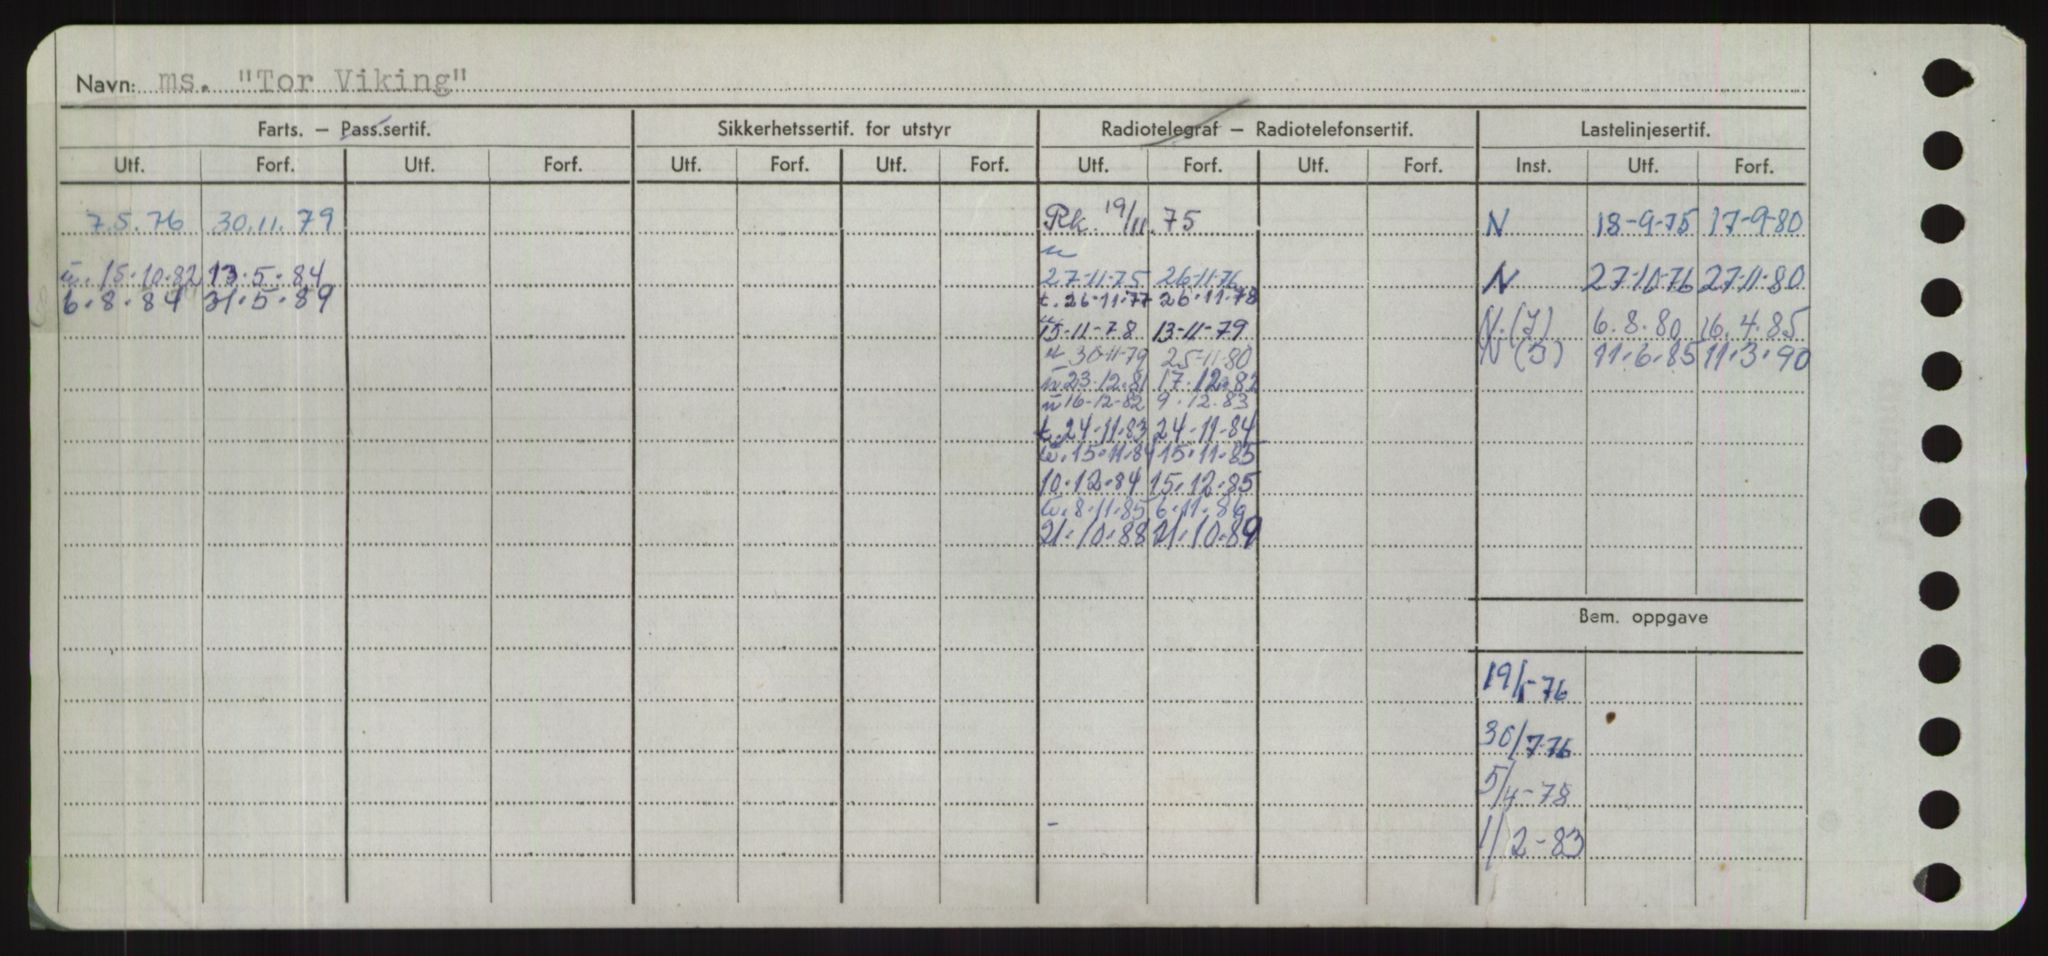 Navn: ms. "Tor Viking"
Farts. — Pass.sertif. Sikkerhetssertif. for utstyr Radiotelegraf — Radiotelefonsertif. Lastelinjesertif.
Utf. Forf. Utf. Forf. Utf. Forf. Utf. Forf. Utf. Forf. Utf. Forf. Inst. Utf. Forf.
7.5.76 30.11.79 Rk. 19/11.75 N 18-9-75 17-9-80
15.10.82 13.5.84 27-11-75 26-11-76 N 27-10-76 27-11-80
6.8.84 31.5.89 t. 26-11-77 26-11-78
15-11-78 13-11-79 N. 6.8.80 16.4.85
30-11-79 25-11-80 N 11.6.85 11.3.90
23.12.81 17.12.82
16-12-82 9.12.83
t. 24.11.83 24.11.84
15.11.84 15.11.85
10.12.84 15.12.85
8.11.85 6.11.86
21.10.88 21.10.89
Bem. oppgave
19/1-76
30/7-76
5/4-78
1/2-83